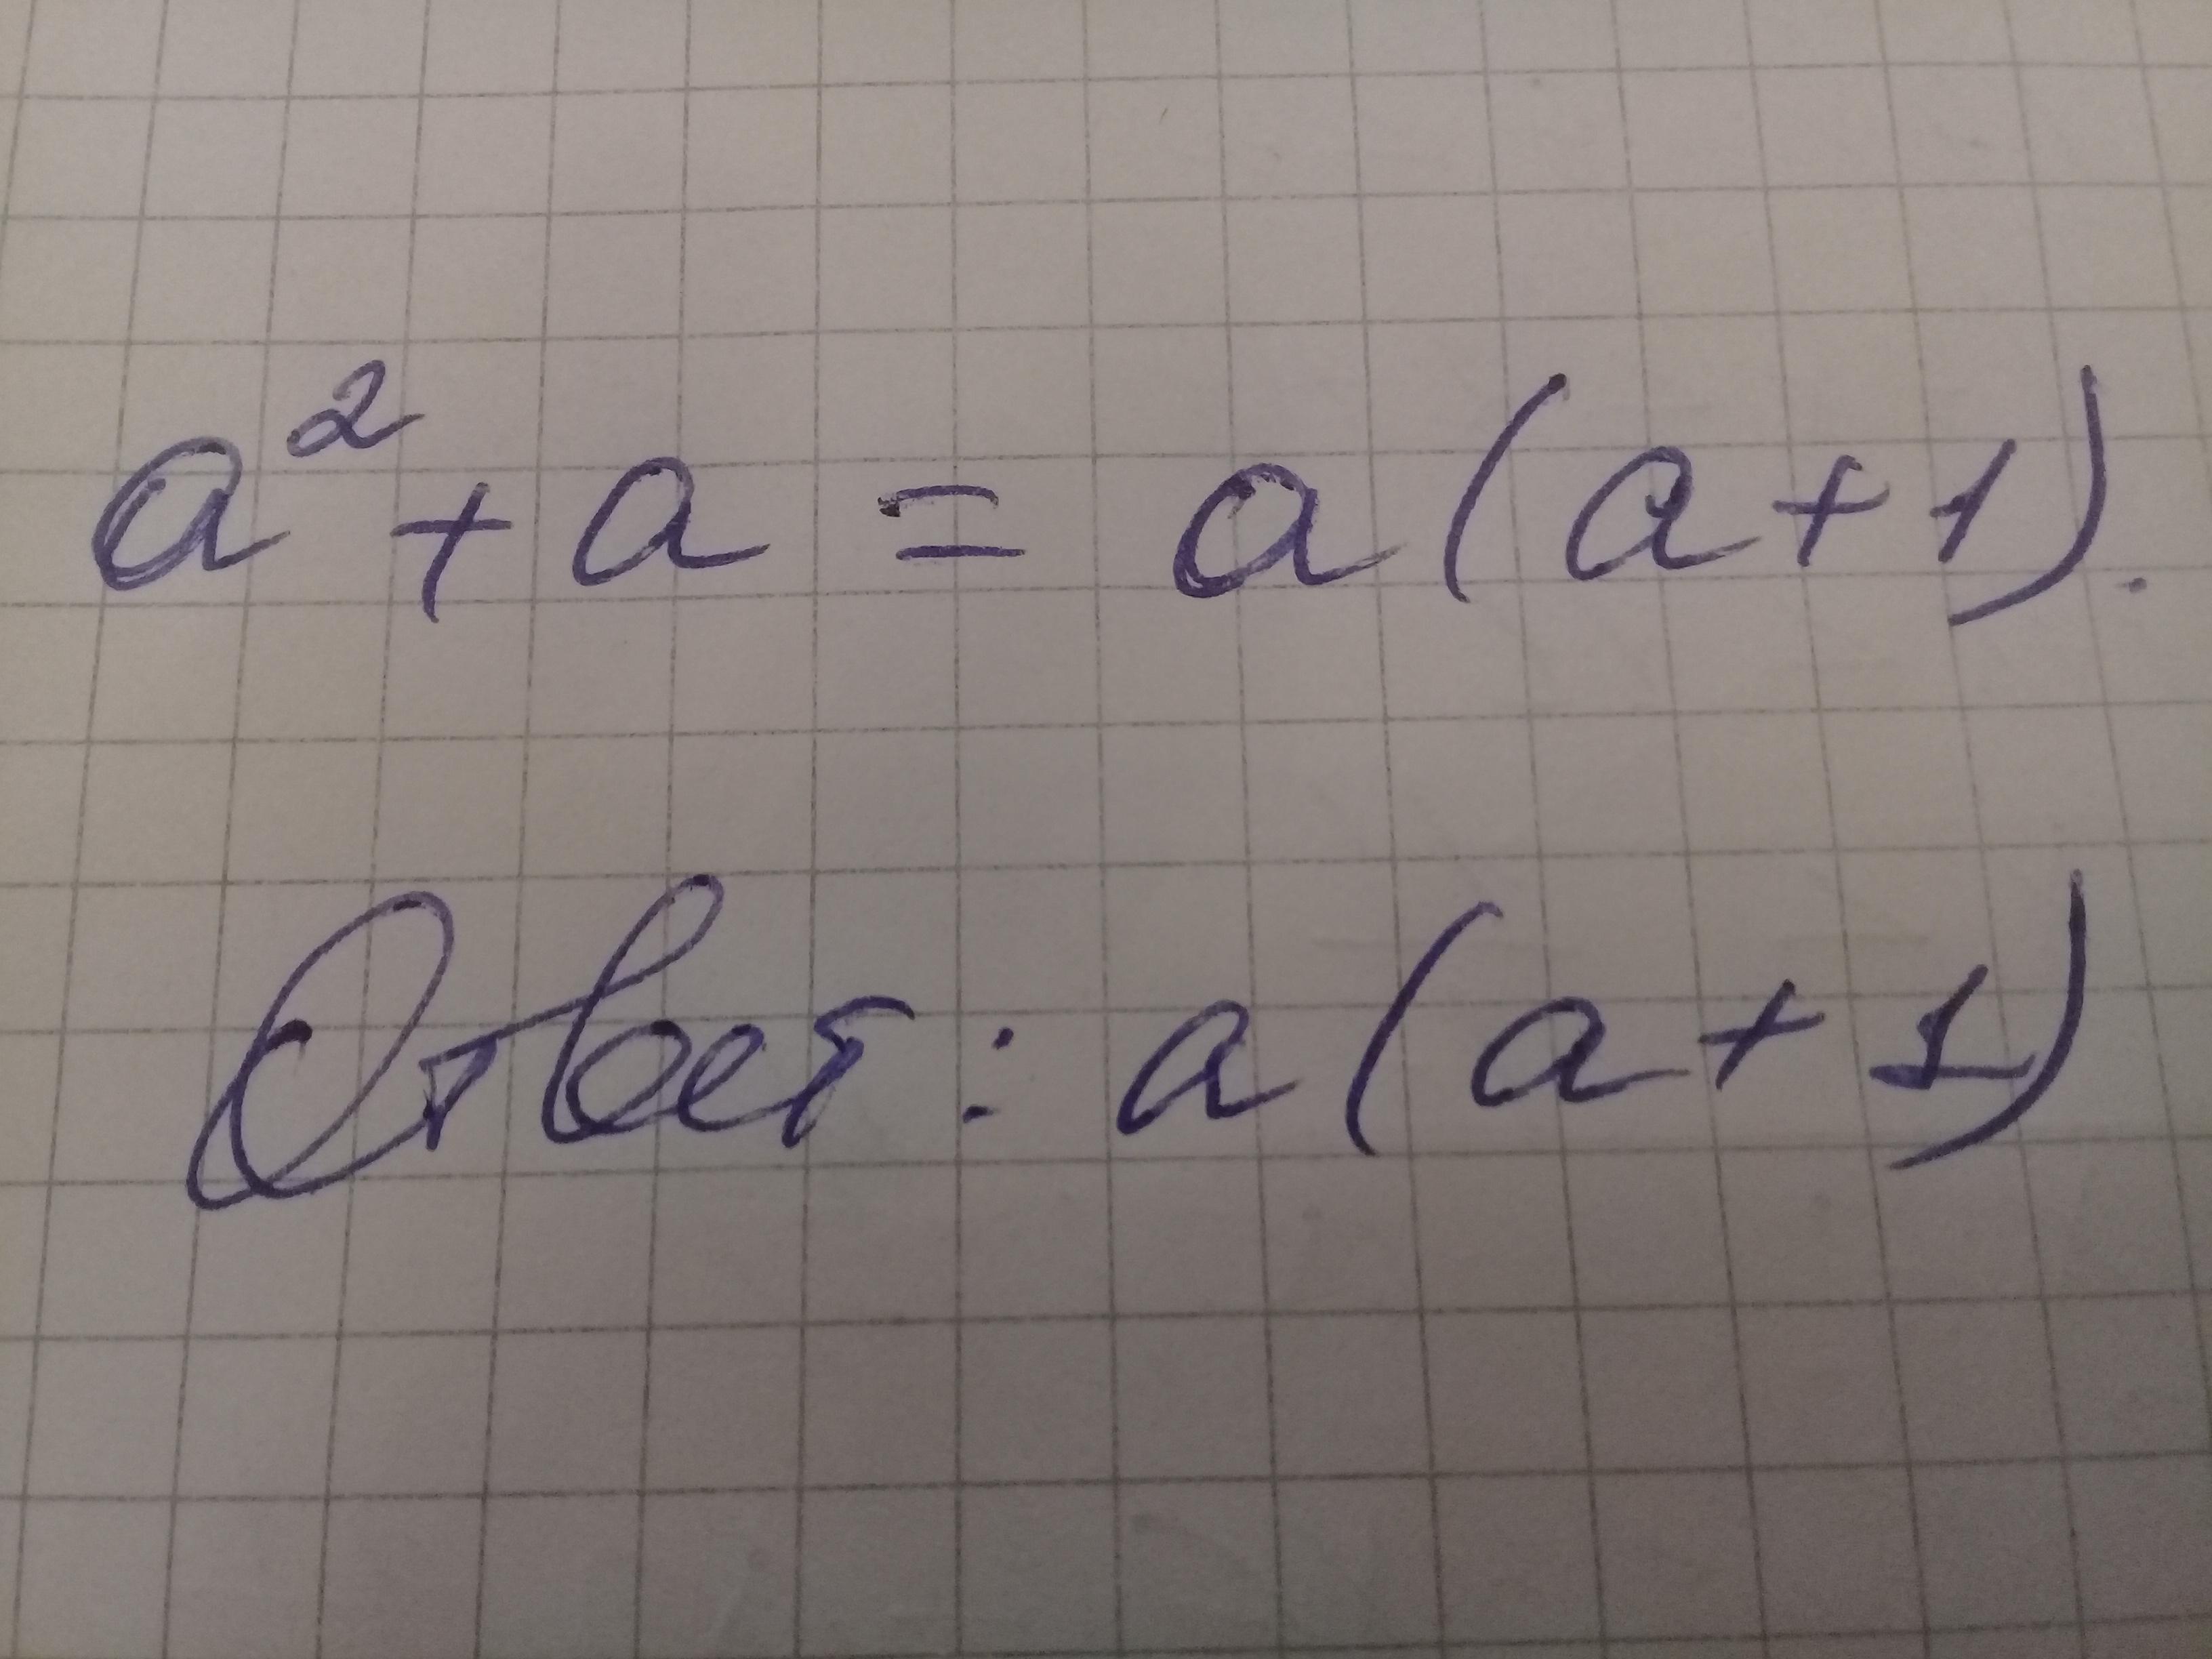 a² + a = a(a+1).
Ответ: a(a+1)